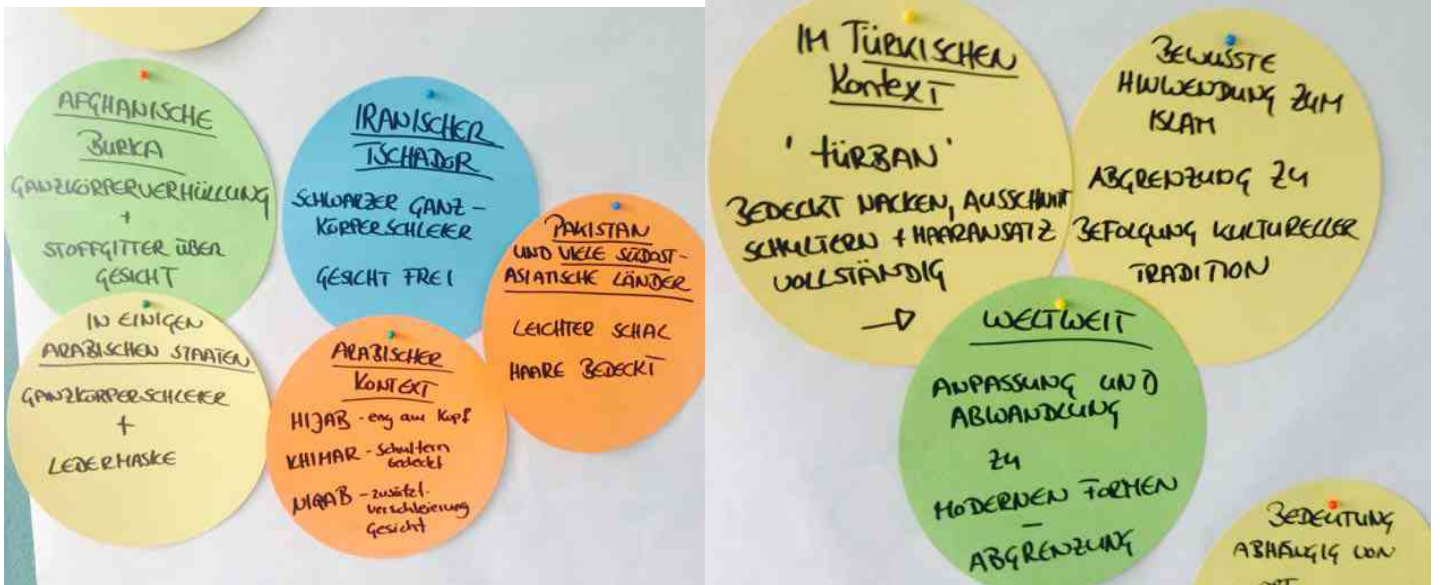 AFGHANISCHE
BURKA
GANZKÖRPERVERHÜLLUNG
+
STOFFGITTER ÜBER
GESICHT
IRANISCHER
TSCHADOR
SCHWARZER GANZ-
KÖRPERSCHLEIER
GESICHT FREI
PAKISTAN
UND VIELE SÜDOST-
ASIATISCHE LÄNDER
LEICHTER SCHAL
HAARE BEDECKT
IN EINIGEN
ARABISCHEN STAATEN
GANZKÖRPERSCHLEIER
+
LEDERMASKE
ARABISCHER
KONTEXT
HIJAB - eng am Kopf
KHIMAR - Schultern
bedeckt
NIQAB - zusätzl.
Verschleierung
Gesicht
IM TÜRKISCHEN
KONTEXT
'TÜRBAN'
BEDECKT NACKEN, AUSSCHNITT
SCHULTERN + HAARANSATZ
VOLLSTÄNDIG
→
BEWUSSTE
HINWENDUNG ZUM
ISLAM
ABGRENZUNG ZU
BEFOLGUNG KULTURELLER
TRADITION
WELTWEIT
ANPASSUNG UND
ABWANDLUNG
ZU
MODERNEN FORMEN
-
ABGRENZUNG
BEDEUTUNG
ABHÄNGIG VON